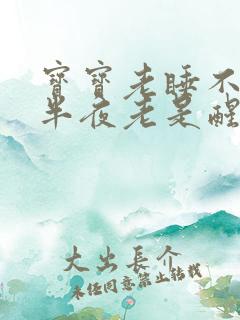 寳寳老睡不
半夜老是醒
大出長个
未经同意禁止转载